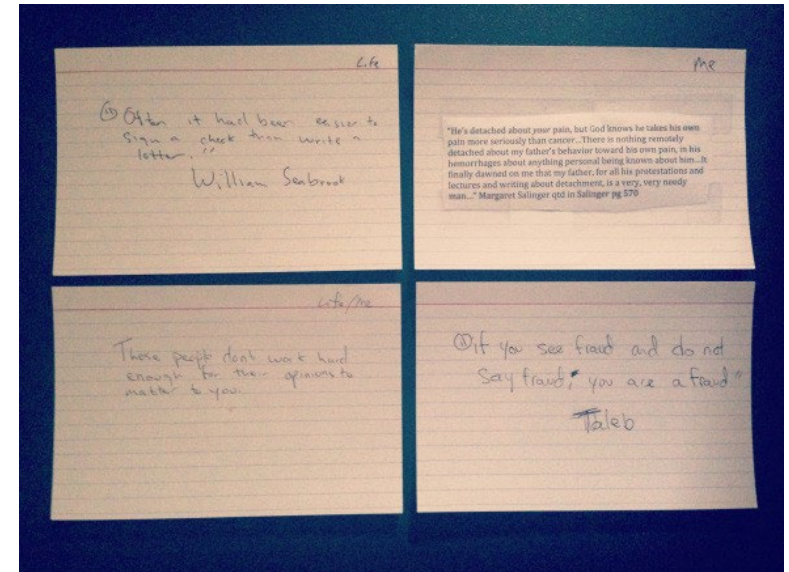 Life
" Often it had been easier to
sign a check than write a
letter."
William Seabrook
Me
"He's detached about your pain, but God knows he takes his own
pain more seriously than cancer...There is nothing remotely
detached about my father's behavior toward his own pain, in his
hemorrhages about anything personal being known about him...It
finally dawned on me that my father, for all his protestations and
lectures and writing about detachment, is a very, very needy
man..." Margaret Salinger qtd in Salinger pg 570
Life/Me
These people dont work hard
enough for their opinions to
matter to you.
" if you see fraud and do not
say fraud, you are a fraud"
Taleb